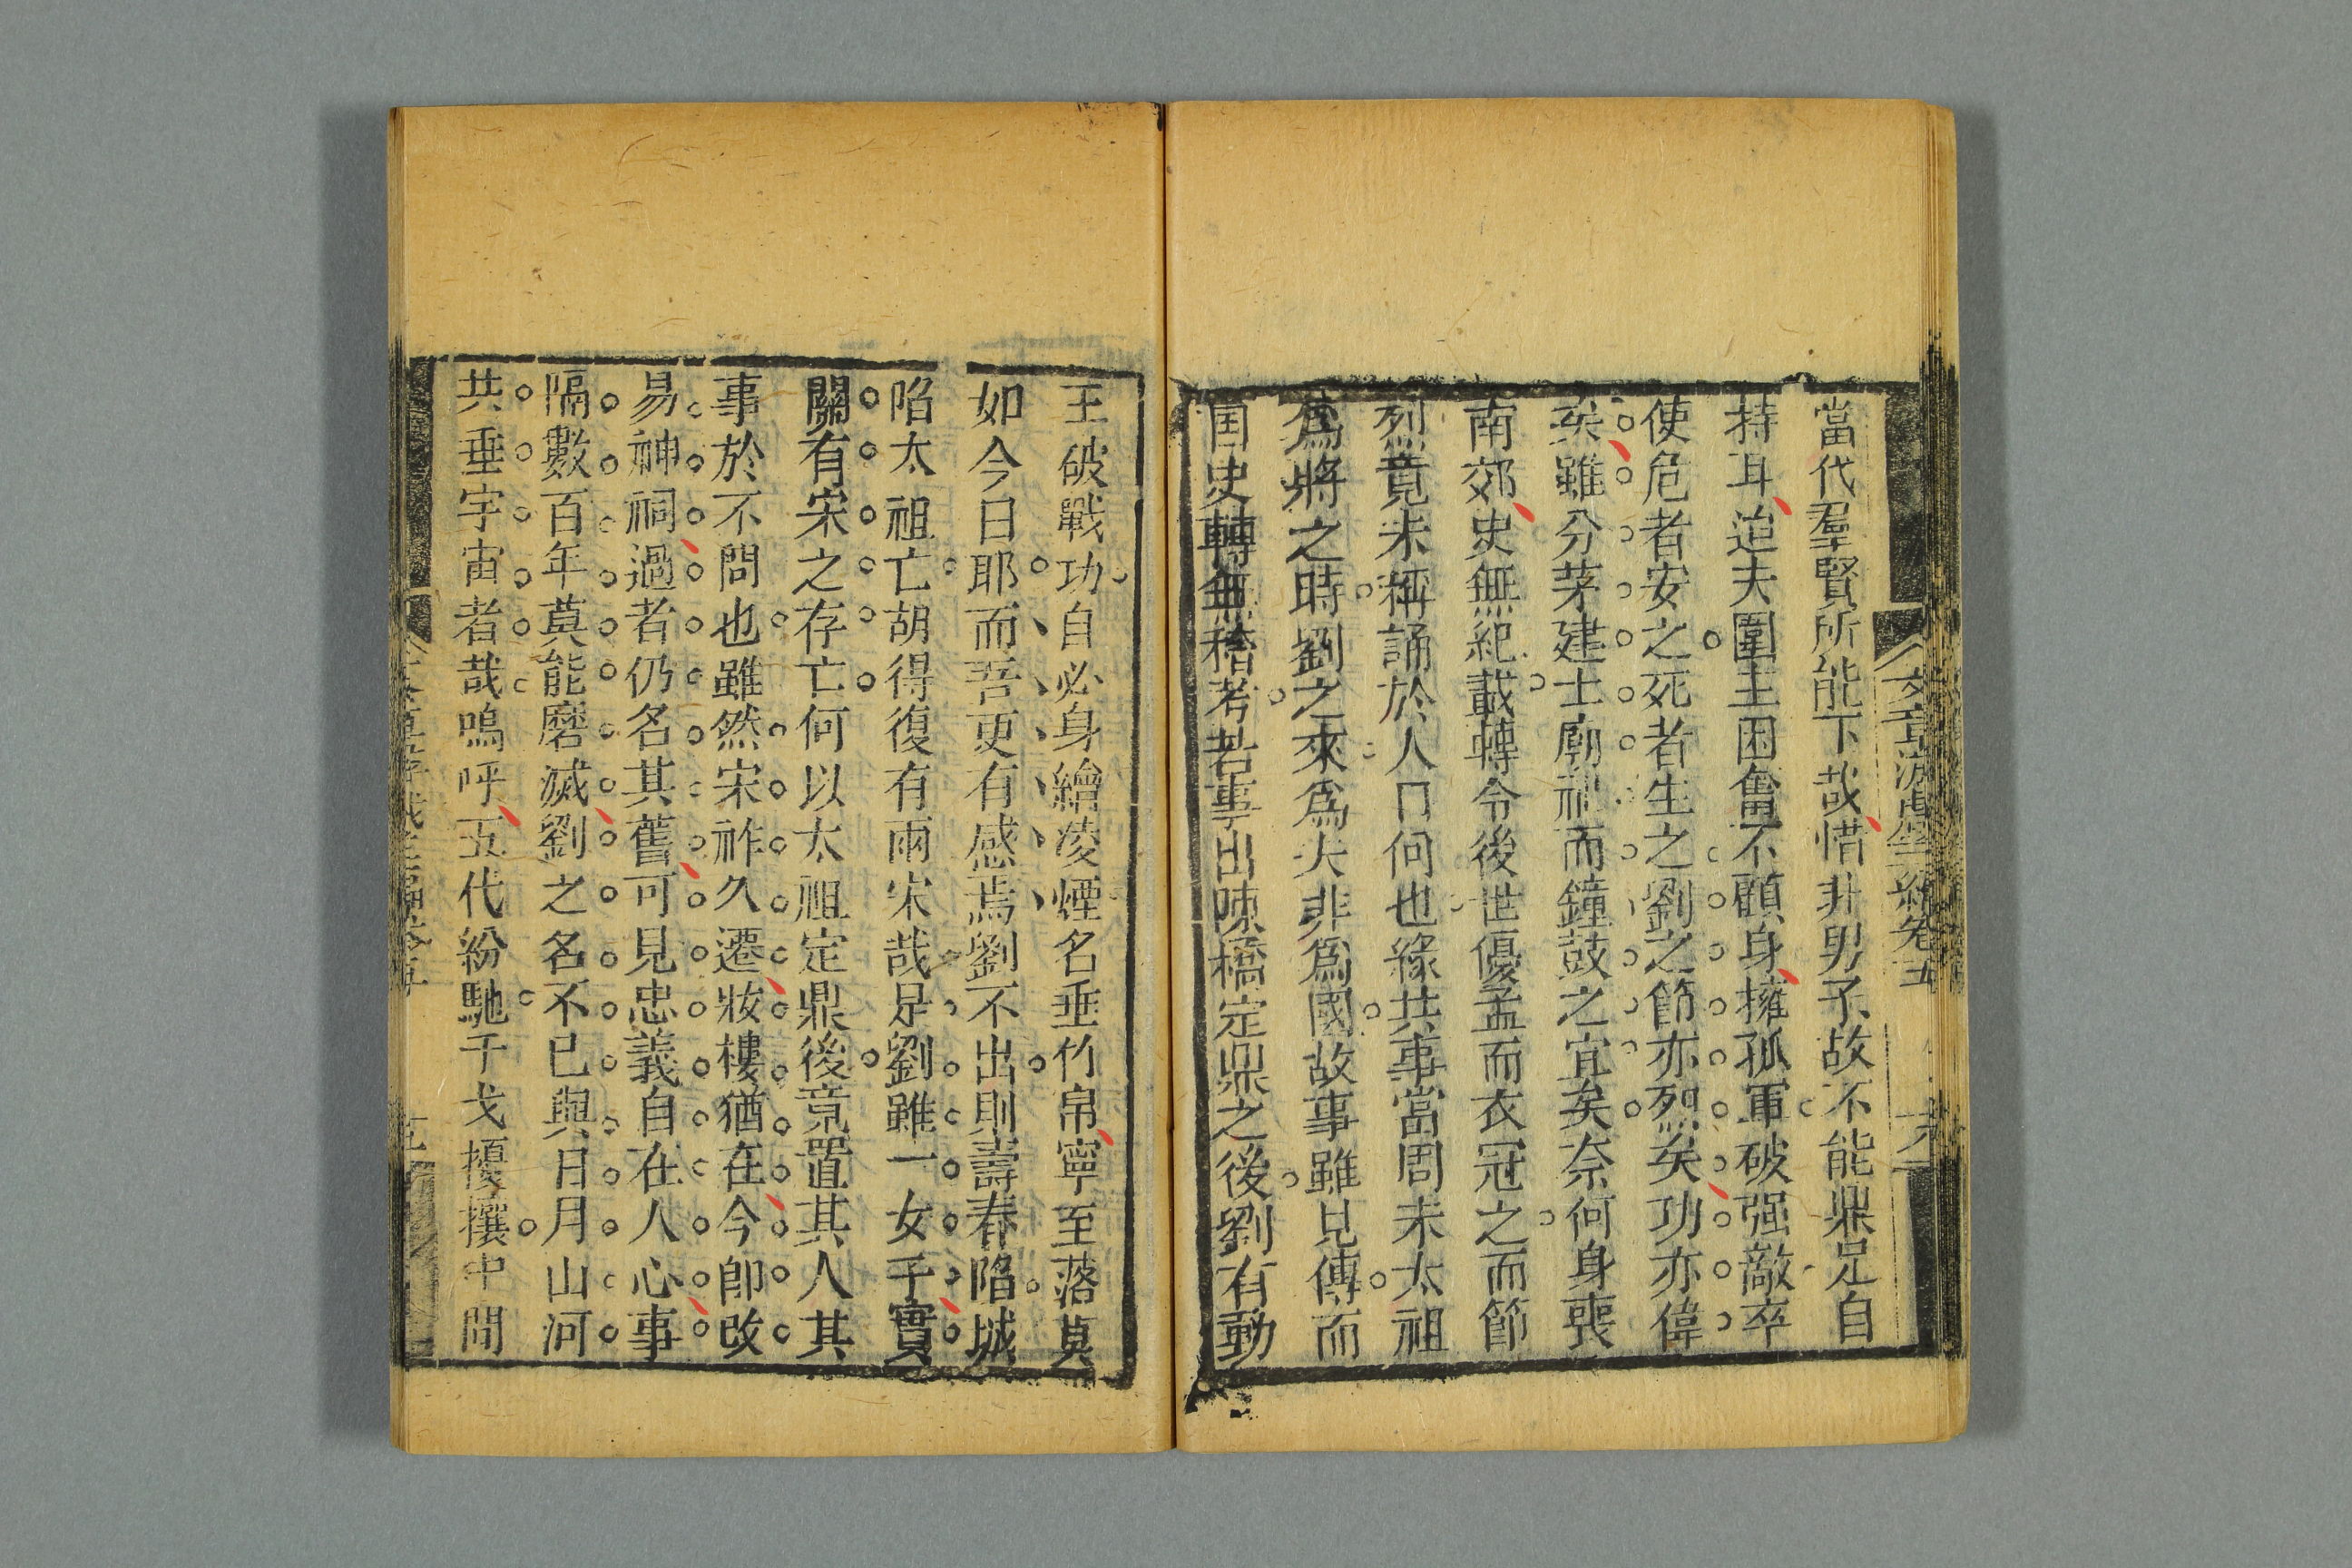 當代羣賢所能下哉惜非男子故不能鼎足自
持耳迨夫圍主困畱不顧身擁孤軍破强敵卒
使危者安之死者生之劉之節亦烈矣功亦偉
矣雖分茅建土廟祀而鐘鼓之宜矣奈何身喪
南郊史無紀載轉令後世優孟而衣冠之而節
烈竟未稱誦於人口何也緣共事當周未太祖
爲將之時劉之來爲夫非爲國故事雖見傳而
国史轉無稽考若事出陳橋定鼎之後劉有勳
王破戰功自必身繪凌煙名垂竹帛寧至落莫
如今日耶而吾更有感焉劉不出則壽春陷城
陷太祖亡胡得復有兩宋哉是劉雖一女子實
關有宋之存亡何以太祖定鼎後竟置其人其
事於不問也雖然宋祚久遷妝樓猶在今卽改
易神祠過者仍名其舊可見忠義自在人心事
隔數百年莫能磨滅劉之名不已與日月山河
共垂宇宙者哉嗚呼五代紛馳干戈擾攘中間